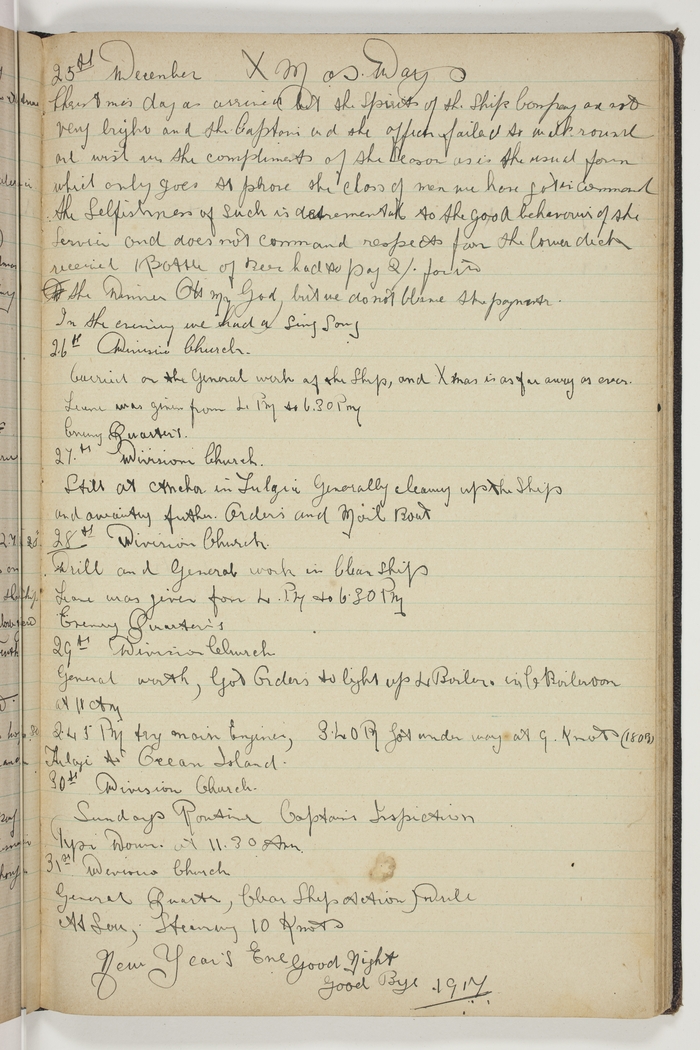 25th December X Mas. Day
Christmas day as arrived but the Spirits of the Ship Company are not
very bright and the Captain and the officers failed to walk round
and wish us the compliments of the Season as is the usual form
which only goes to prove the class of men we have got in command
the Selfishness of such is detremental to the good behaviour of the
Service and does not command respects from the lower deck
received 1 Bottle of Beer had to pay 2/. for it
the Dinner Oh my God, but we do not blame the paymaster.
In the evening we had a Sing Song
26th Division Church.
Carried on the General work of the Ship, and Xmas is as far away as ever.
Leave was given from 4 PM to 6.30 PM
Evening Quarters.
27th Division Church.
Still at Anchor in Tulgie Generally cleaning up the Ship
and awaiting further Orders and Mail Boat
28th Division Church.
Drill and General work in Clear Ship
Leave was given from 4. PM to 6.30 PM
Evening Quarters
29th Division Church
General work, Got Orders to light up 4 Boilers in Boilerroom
at 11 AM
2.45 PM try main Engines, 3.40 PM Got under way at 9. Knots (1803)
Tulagi to Ocean Island.
30th Division Church.
Sundays Routine Captains Inspection
Pipe Down at 11.30 Am.
31st Division Church
General Quarter, Clear Ship Action, Drill
At Sea, Steaming 10 Knots
New Year's Eve Good Night
Good Bye 1917